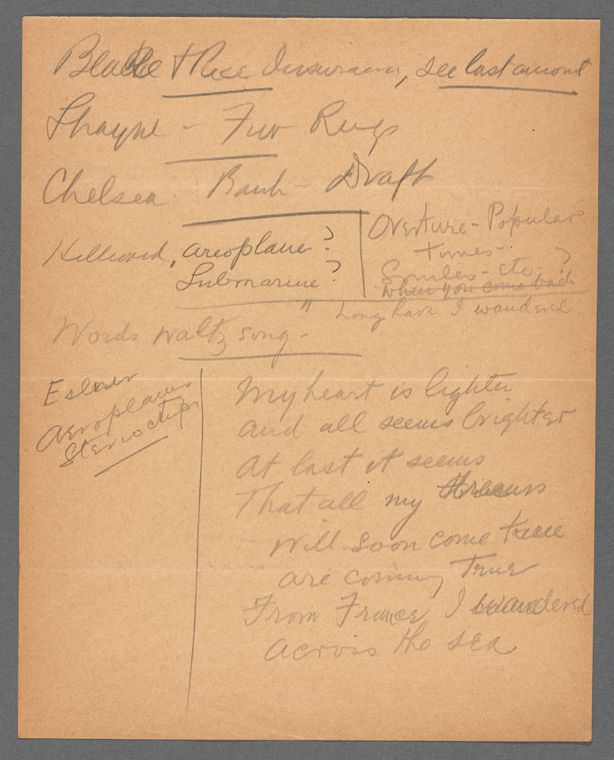 Blake + Rice Insurance, see last amount
Shayne - Fur Rugs
Chelsea Bank - Draft
Hollywood, aeroplane?
Submarine?
Overture - Popular
Tunes -
Smiles - etc. ?
When you come back
" Long have I wandered
Words waltz song -
Aeroplanes
My heart is lighter
And all seems brighter
At last it seems
That all my dreams
Will soon come true
are coming True
From France I wandered
Across the sea